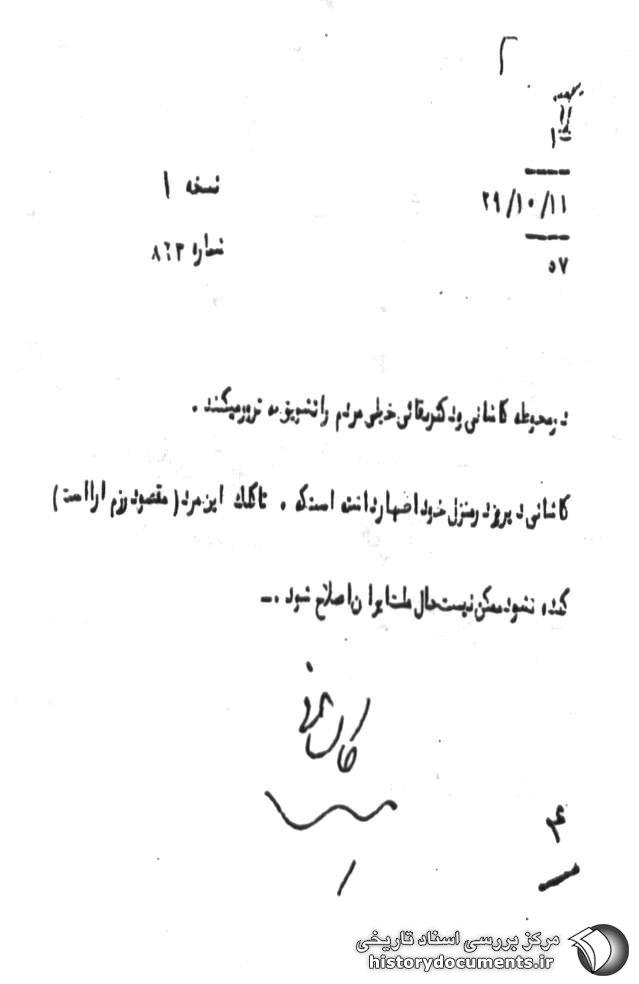 ۲۹/۱۰/۱۱
نسخه ۱
شماره ۸۶۳
۵۷
در محوطه کاشانی و دکتر بقائی خیلی مردم را تشویق به ترور میکنند .
کاشانی دیروز در منزل خود اضهار داشته است که . تا کلک این مرد ( مقصود رزم ارا است )
کنده نشود ممکن نیست حال ملت ایران اصلاح شود .ــ
مرکز بررسی اسناد تاریخی
historydocuments.ir